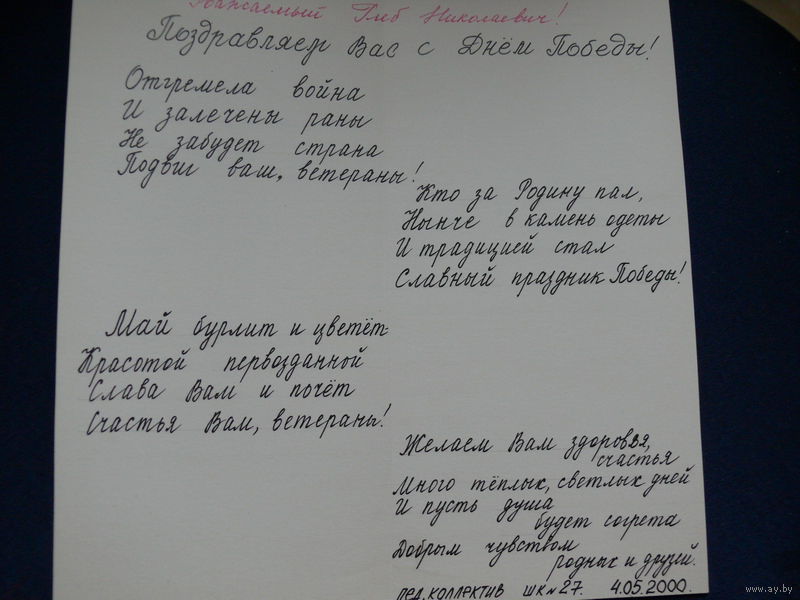 Уважаемый Глеб Николаевич!
Поздравляем Вас с Днём Победы!
Отгремела война
И залечены раны
Не забудет страна
Подвиг ваш, ветераны!
Кто за Родину пал,
Нынче в камень одеты
И традицией стал
Славный праздник Победы!
Май бурлит и цветёт
Красотой первозданной
Слава Вам и почёт
Счастья Вам, ветераны!
Желаем Вам здоровья,
счастья
Много тёплых, светлых дней
И пусть душа
будет согрета
Добрым чувством
родных и друзей.
пед. коллектив шк № 27. 4.05.2000.
www.ay.by